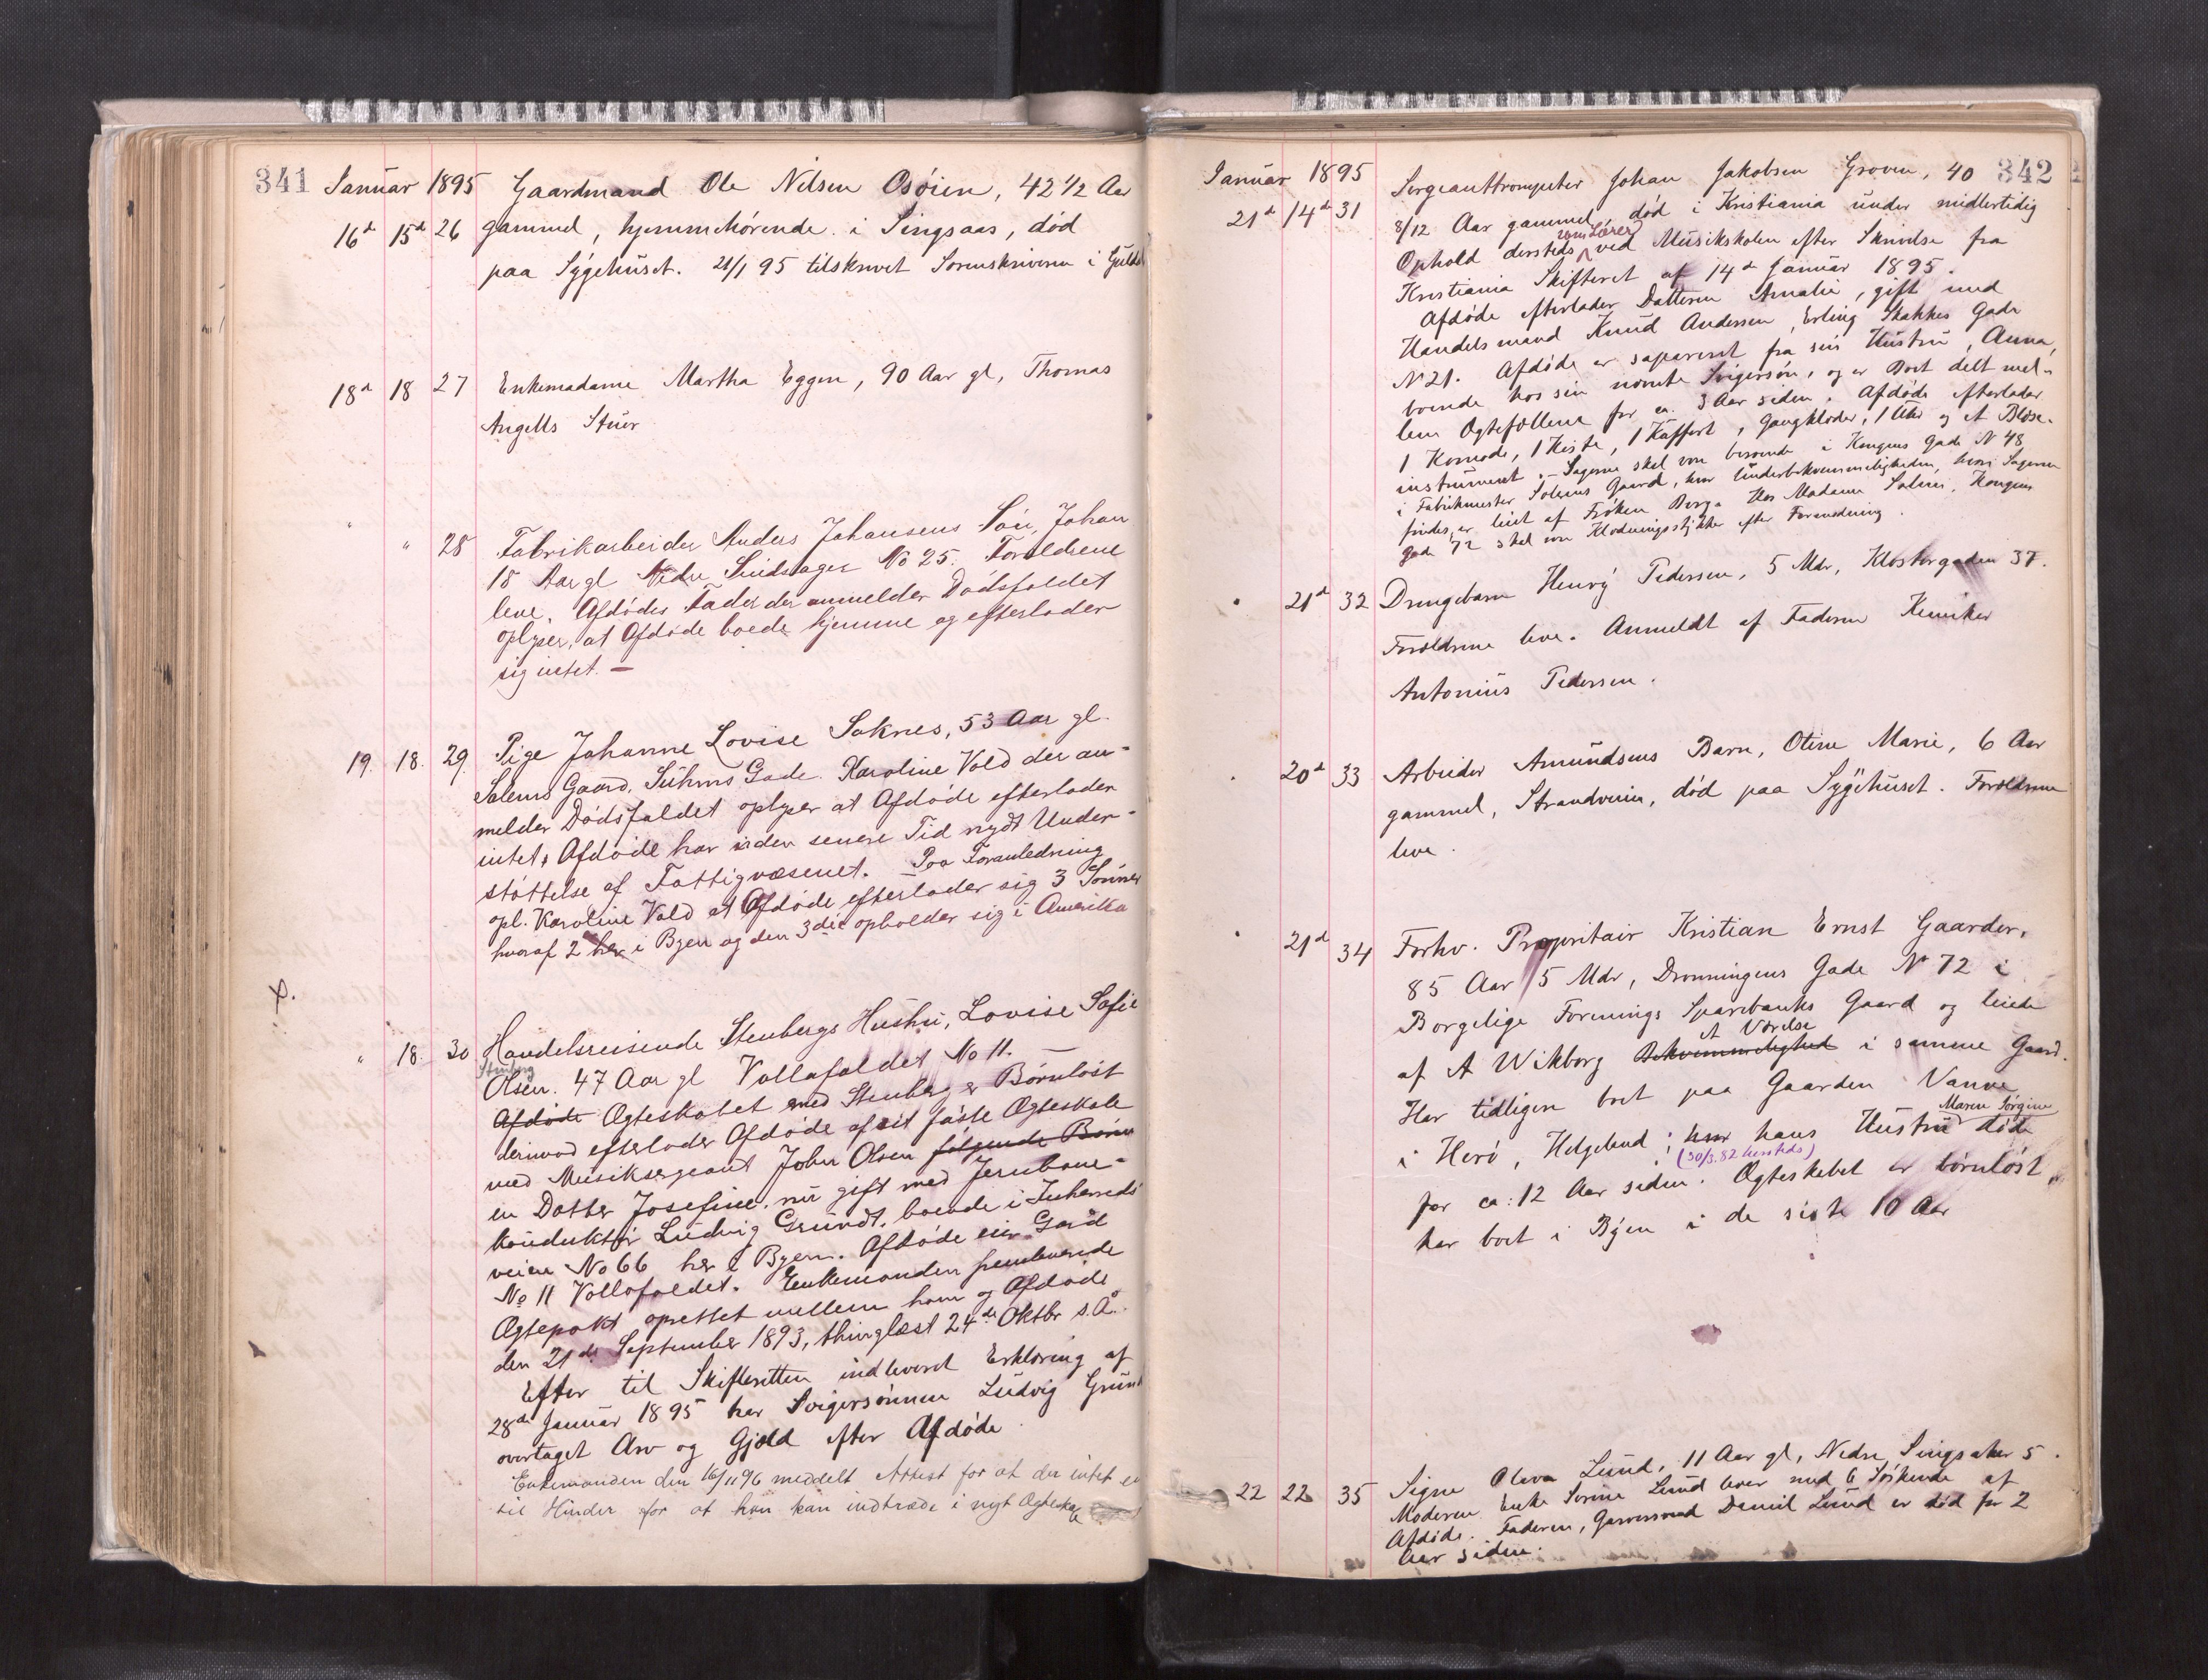 341 Januar 1895 Gaardmand Ole Nilsen Osøien, 42 1/2 Aar
16d 15d 26 gammel, hjemmehørende i Singsaas, død
paa Sygehuset. 21/1 95 tilskrevet Sorenskriveren i Guldal
18d 18 27 Enkemadame Martha Eggen, 90 Aar gl, Thomas
Angells Stuer
" 28 Fabrikarbeider Anders Johansens Søn, Johan
18 Aar gl Nedre Singsager No 25. Forældrene
leve. Afdødes Fader der anmelder Dødsfaldet
oplyser, at Afdøde boede hjemme og efterlader
sig intet. —
19. 18. 29. Pige Johanne Lovise Saknes, 53 Aar gl.
Salems Gaard, Suhms Gade. Karoline Vold der an-
melder Dødsfaldet oplyser at Afdøde efterlader
intet, Afdøde har i den senere Tid nydt Under-
støttelse af Fattigvæsenet. Paa Foranledning
opl. Karoline Vold at Afdøde efterlader sig 3 Sønner
hvoraf 2 her i Byen og den 3die opholder sig i Amerika
" 18. 30 Handelsreisende Stenbergs Hustru, Lovise Sofie
Stenberg
Olsen. 47 Aar gl Vollafaldet No 11. —
Afdøde Ægteskabet med Stenberg er Børnløst
derimod efterlader Afdøde af sit første Ægteskab
med Musiksergeant John Olsen følgende Børn
en Datter Josefine, nu gift med Jernbane-
konduktør Ludvig Grundt, boende i Inherreds
veien No 66 her i Byen. Afdøde eier Gaard
No 11 Vollafaldet. Enkemanden fremleverede
Ægtepakt oprettet mellem ham og Afdøde
den 21de September 1893, thinglæst 24de Oktbr s.A.
Efter til Skifteretten indleveret Erklæring af
28de Januar 1895 har Svigersønnen Ludvig Grundt
overtaget Arv og Gjæld efter Afdøde
Enkemanden den 16/11 96 meddelt Attest for at der intet er
til Hinder for at han kan indtræde i nyt Ægteskab
Januar 1895 Sergeanttrompeter Johan Jakobsen Groven, 40 342
21d 14d 31 8/12 Aar gammel, død i Kristiania under midlertidig
som Lærer
Ophold dersteds ved Musikskolen efter Skrivelse fra
Kristiania Skifteret af 14d Januar 1895.
Afdøde efterlader Datteren Amalie, gift med
Handelsmand Knud Andersen, Erling Skakkes Gade
N 21. Afdøde er separeret fra sin Hustru, Anna,
boende hos sin nævnte Svigersøn, og er Boet delt mel-
lem Ægtefællerne for ca. 3 Aar siden. Afdøde efterlader
1 Komode, 1 Kiste, 1 Kuffert, Gangklæder, 1 Uhr og et Blæse-
instrument. – Sagerne skal være beroende i Kongens Gade N 48
i Fabrikmester Solems Gaard, hvor Underbekvemmeligheden, hvori Sagerne
findes, er leiet af Frøken Berg. Hos Madame Solem, Kongens
Gade 72 skal være Klædningsstykker efter Foranledning.
21d 32 Drengebarn Henry Pedersen, 5 Mdr, Klostergaden 37.
Forældrene leve. Anmeldt af Faderen Kemiker
Antonius Pedersen.
20d 33 Arbeider Amundsens Barn, Otine Marie, 6 Aar
gammel, Strandveien, død paa Sygehuset. Forældrene
leve.
21d 34 Forhv. Proprietair Kristian Ernst Gaarder,
85 Aar 5 Mdr, Dronningens Gade No 72 i
Borgelige Forenings Sparebanks Gaard og leiede
et Værelse
af A Wikborg Bekvemmelighed i samme Gaard.
Har tidligere boet paa Gaarden Vanve
Maren Jørgine
i Herø, Helgeland; hvor hans Hustru døde
(30/3.82 hersteds)
for ca: 12 Aar siden. Ægteskabet er børnløst,
har boet i Byen i de sidste 10 Aar
22 22 35 Signe Oleva Lund, 11 Aar gl, Nedre Singsaker 5.
Moderen Enke Serine Lund lever med 6 Søskende af
Afdøde. Faderen, Garversvend Daniel Lund er død for 2
Aar siden.